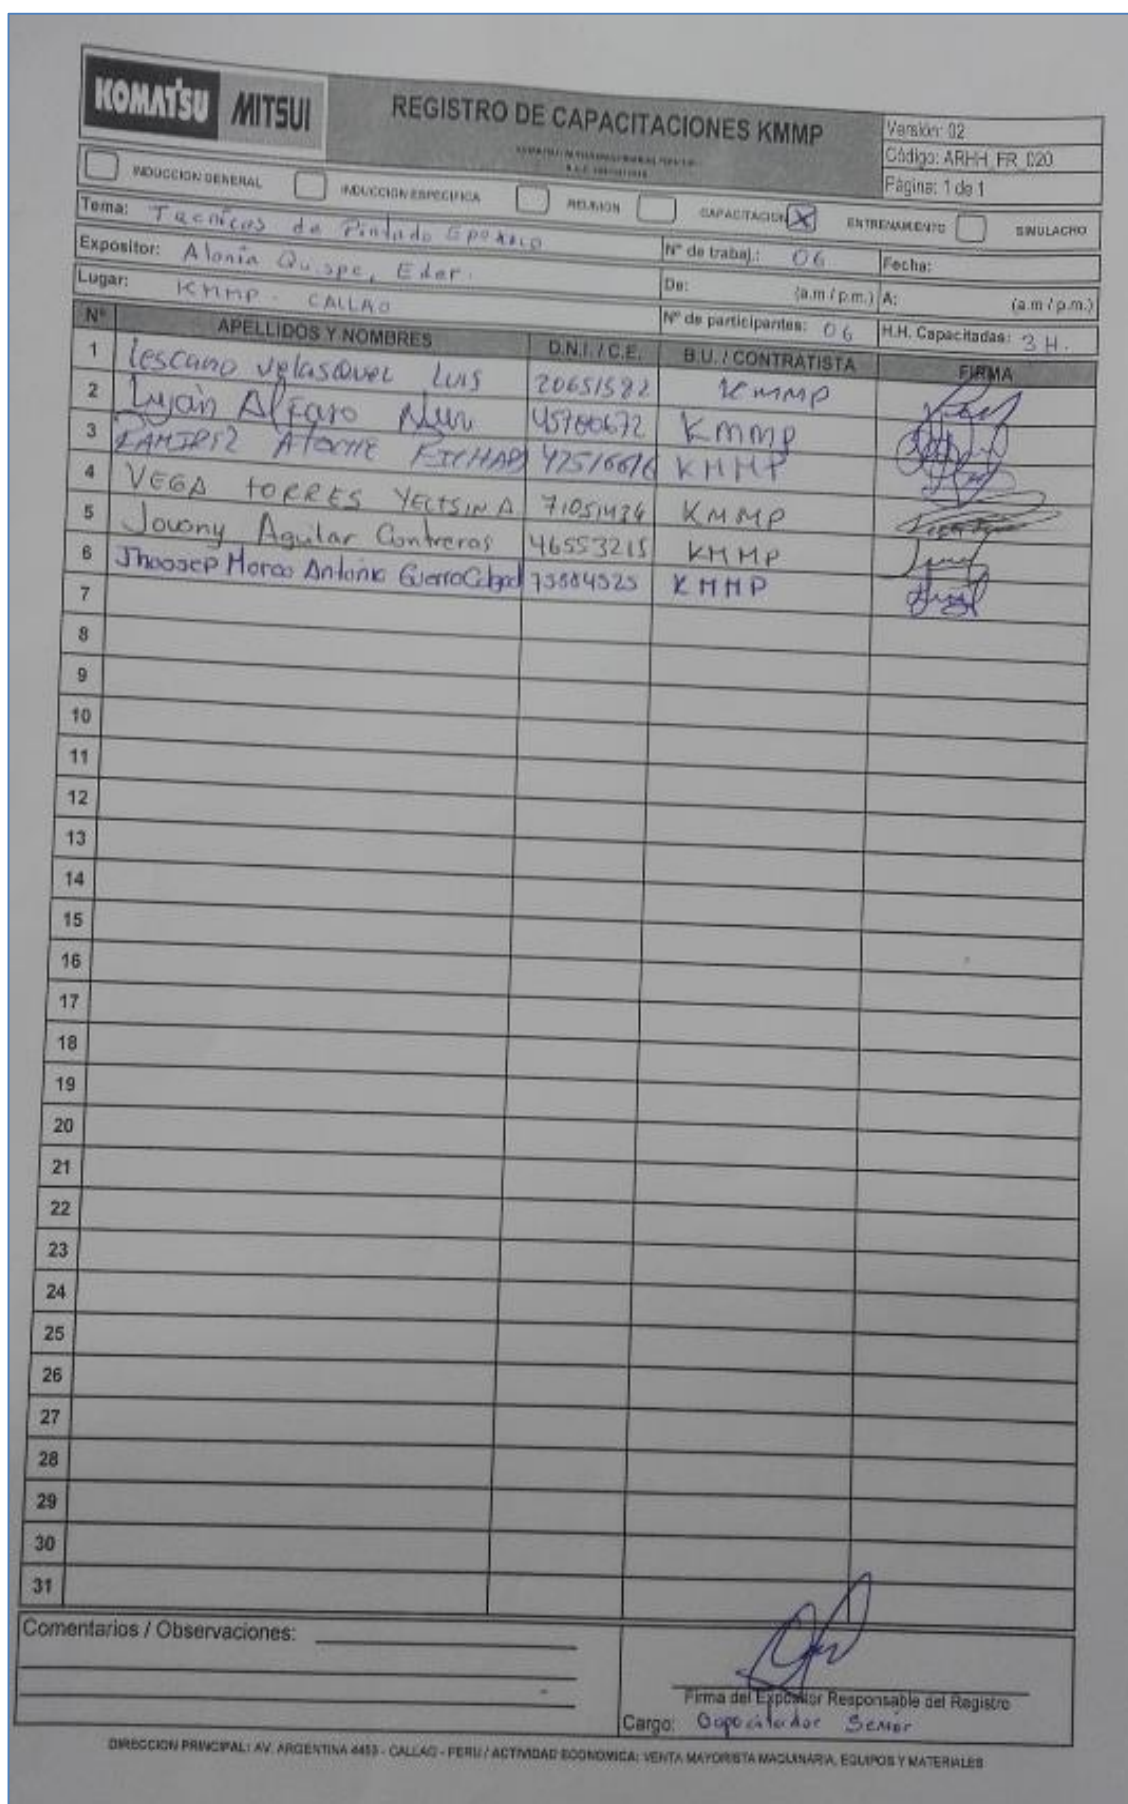 KOMATSU MITSUI
REGISTRO DE CAPACITACIONES KMMP
Versión: 02
Código: ARHH_FR_020
Página: 1 de 1
INDUCCION GENERAL INDUCCION ESPECIFICA REUNION CAPACITACION X ENTRENAMIENTO SIMULACRO
Tema: Tecnicas de Pintado Epoxico
Expositor: Alania Quispe, Eder. N° de trabaj.: 06 Fecha:
Lugar: KMMP. CALLAO De: (a.m / p.m.) A: (a.m / p.m.)
N° de participantes: 06 H.H. Capacitadas: 3 H.
N° APELLIDOS Y NOMBRES D.N.I. / C.E. B.U. / CONTRATISTA FIRMA
1 Lescano Velasquez Luis 20651582 KMMP
2 Luján Alfaro KMMP
3 RAMIREZ KMMP
4 VEGA TORRES YELTSIN A 71051424 KMMP
5 Jovony Aguilar Contreras 46553215 KMMP
6 Jhoosep Marco Antonio Guerra KMMP
7
8
9
10
11
12
13
14
15
16
17
18
19
20
21
22
23
24
25
26
27
28
29
30
31
Comentarios / Observaciones:
Firma del Expositor Responsable del Registro
Cargo: Capacitador Senior
DIRECCION PRINCIPAL: AV. ARGENTINA 4453 - CALLAO - PERU / ACTIVIDAD ECONOMICA: VENTA MAYORISTA MAQUINARIA, EQUIPOS Y MATERIALES